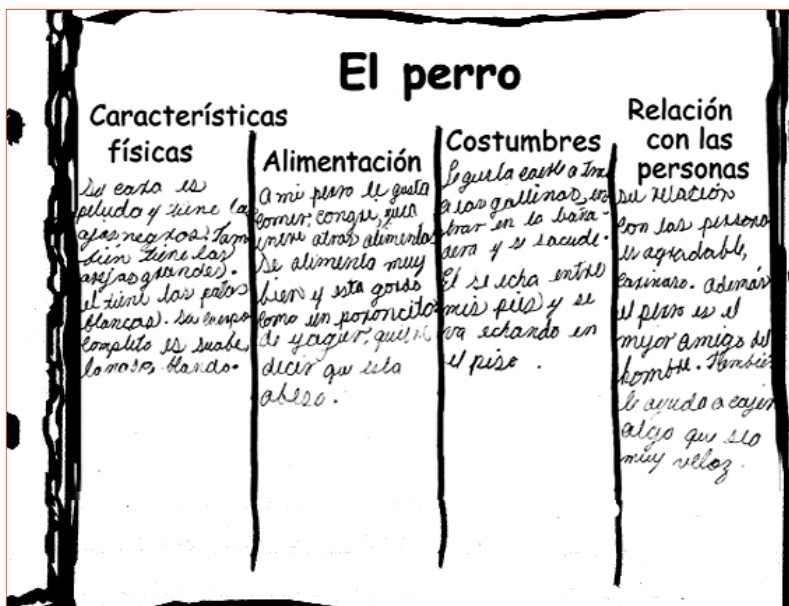 El perro
Características
físicas
Su cara es
peluda y tiene las
ojos negros. Tam
bién tiene las
orejas grandes.
el tiene las patas
blancas. Su cuerpo
completo es suabe,
blando.
Alimentación
a mi perro le gusta
comer; congri,
entre otros alimentos
se alimenta muy
bien y esta gordo
como un
de quiere
decir que esta
Costumbres
Le gusta
a las gallinas, en
trar en la baña-
dera y se sacude.
El se echa entre
mis pies y se
va echando en
el piso.
Relación
con las
personas
su relación
con las persona
es agradable,
cariñoso. además
el perro es el
mejor amigo del
hombre. También
le ayuda a cojer
algo que sea
muy veloz.